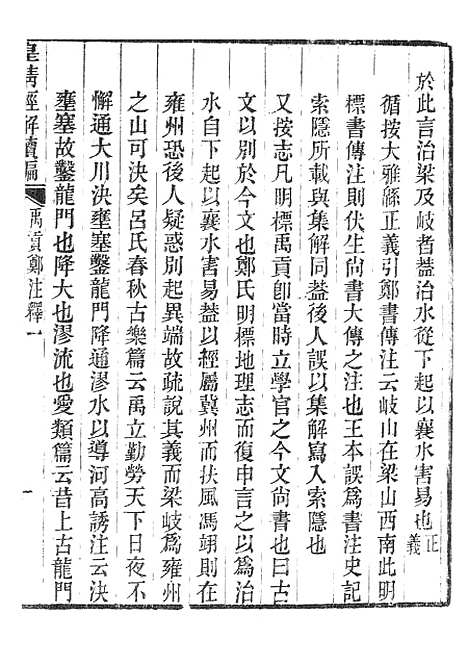 於此言治梁及岐者葢治水從下起以襄水害易也正義
循按大雅緜正義引鄭書傳注云岐山在梁山西南此明
標書傳注則伏生尙書大傳之注也王本誤爲書注史記
索隱所載與集解同葢後人誤以集解寫入索隱也
又按志凡明標禹貢卽當時立學官之今文尙書也曰古
文以別於今文也鄭氏明標地理志而復申言之以爲治
水自下起以襄水害易葢以經屬冀州而扶風馮翊則在
雍州恐後人疑惑別起異端故疏說其義而梁岐爲雍州
之山可決矣呂氏春秋古樂篇云禹立勤勞天下日夜不
懈通大川決壅塞鑿龍門降通漻水以導河高誘注云決
壅塞故鑿龍門也降大也漻流也愛類篇云昔上古龍門
皇淸經解續編
禹貢鄭注釋一
一